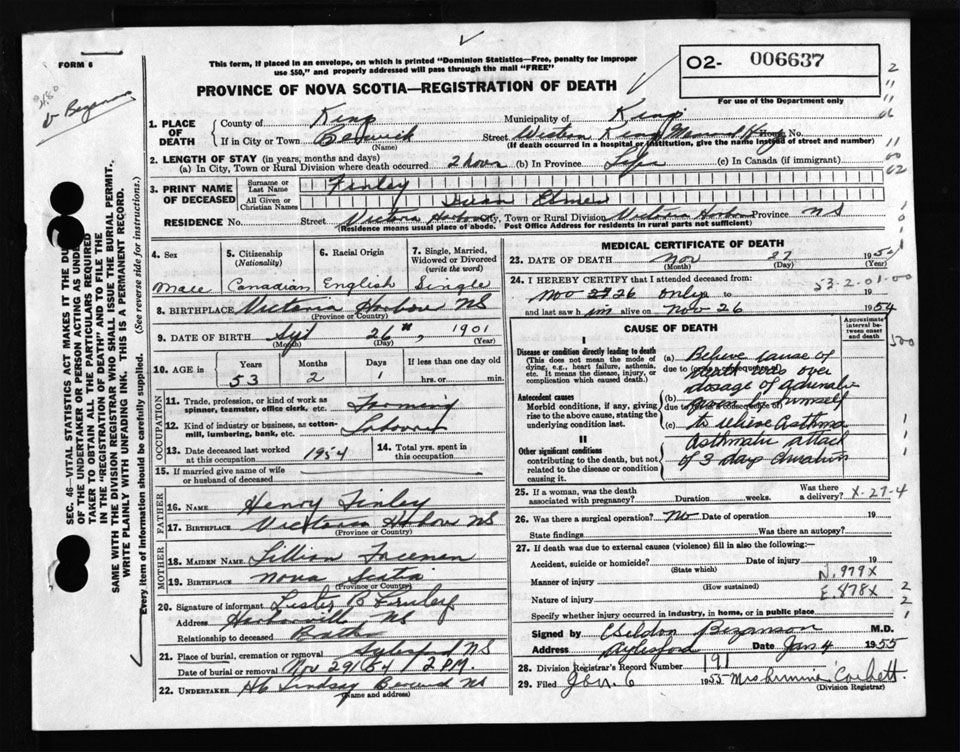 FORM 6
This form, if placed in an envelope, on which is printed "Dominion Statistics—Free, penalty for improper
use $50," and properly addressed will pass through the mail "FREE"
O2- 006637
For use of the Department only
PROVINCE OF NOVA SCOTIA—REGISTRATION OF DEATH
1. PLACE OF DEATH
County of Kings Municipality of Kings
If in City or Town Berwick Street Western Kings Memorial No.
(Name) (If death occurred in a hospital or institution, give the name instead of street and number)
2. LENGTH OF STAY (in years, months and days)
(a) In City, Town or Rural Division where death occurred 2 hours (b) In Province Life (c) In Canada (if immigrant)
3. PRINT NAME OF DECEASED
Surname or Last Name Finley
All Given or Christian Names Elmer
RESIDENCE No. Street Victoria Harbour City, Town or Rural Division Victoria Harbor Province NS
(Residence means usual place of abode. Post Office Address for residents in rural parts not sufficient)
4. Sex 5. Citizenship (Nationality) 6. Racial Origin 7. Single, Married, Widowed or Divorced (write the word)
Male Canadian English Single
8. BIRTHPLACE Victoria Harbour NS
(Province or Country)
9. DATE OF BIRTH Sept 26th, 1901
(Month) (Day) (Year)
10. AGE in Years Months Days If less than one day old
53 2 1 hrs. or min.
OCCUPATION
11. Trade, profession, or kind of work as spinner, teamster, office clerk, etc. Farming
12. Kind of industry or business, as cotton-mill, lumbering, bank, etc. Labourer
13. Date deceased last worked at this occupation 1954 14. Total yrs. spent in this occupation
15. If married give name of wife or husband of deceased
FATHER
16. NAME Henry Finley
17. BIRTHPLACE Victoria Harbour NS
(Province or Country)
MOTHER
18. MAIDEN NAME Lillian Freeman
19. BIRTHPLACE Nova Scotia
(Province or Country)
20. Signature of informant Lester B Finley
Address Harbourville NS
Relationship to deceased Brother
21. Place of burial, cremation or removal Aylesford NS
Date of burial or removal Nov 29 1954 2 P.M.
22. UNDERTAKER H6 Lindsay Berwick NS
(Name and address)
MEDICAL CERTIFICATE OF DEATH
23. DATE OF DEATH Nov 27 1954
(Month) (Day) (Year)
24. I HEREBY CERTIFY that I attended deceased from:
53-2-01-00
Nov 26 only to 19
and last saw him alive on Nov 26 1954
CAUSE OF DEATH
Approximate interval between onset and death
I
Disease or condition directly leading to death
(This does not mean the mode of dying, e.g., heart failure, asthenia, etc. It means the disease, injury, or complication which caused death.)
Antecedent causes
Morbid conditions, if any, giving rise to the above cause, stating the underlying condition last.
II
Other significant conditions
contributing to the death, but not related to the disease or condition causing it.
(a) Believe cause of
due to (or as a consequence of)
death was over
dosage of adrenalin
(b) given by himself
due to (or as a consequence of)
(c) to relieve Asthma
Asthmatic attack
of 3 days duration
500
25. If a woman, was the death associated with pregnancy? Duration weeks. Was there a delivery? X-27-4
26. Was there a surgical operation? No Date of operation 19
State findings Was there an autopsy?
27. If death was due to external causes (violence) fill in also the following:—
Accident, suicide or homicide? Date of injury 19
(State which)
N.979X
Manner of injury
(How sustained)
E.878X
Nature of injury
Specify whether injury occurred in industry, in home, or in public place
Signed by Bezanson M.D.
Address Aylesford Date Jan 4 1955
28. Division Registrar's Record Number 191
29. Filed Jan. 6 1955 Mrs Corbett
(Division Registrar)
SEC. 46—VITAL STATISTICS ACT MAKES IT THE DUTY
OF THE UNDERTAKER OR PERSON ACTING AS UNDERTAKER TO OBTAIN ALL THE PARTICULARS REQUIRED
IN THE "REGISTRATION OF DEATH" AND TO FILE THE
SAME WITH THE DIVISION REGISTRAR WHO SHALL ISSUE THE BURIAL PERMIT.
WRITE PLAINLY WITH UNFADING INK. THIS IS A PERMANENT RECORD.
Every item of information should be carefully supplied. (See reverse side for instructions.)